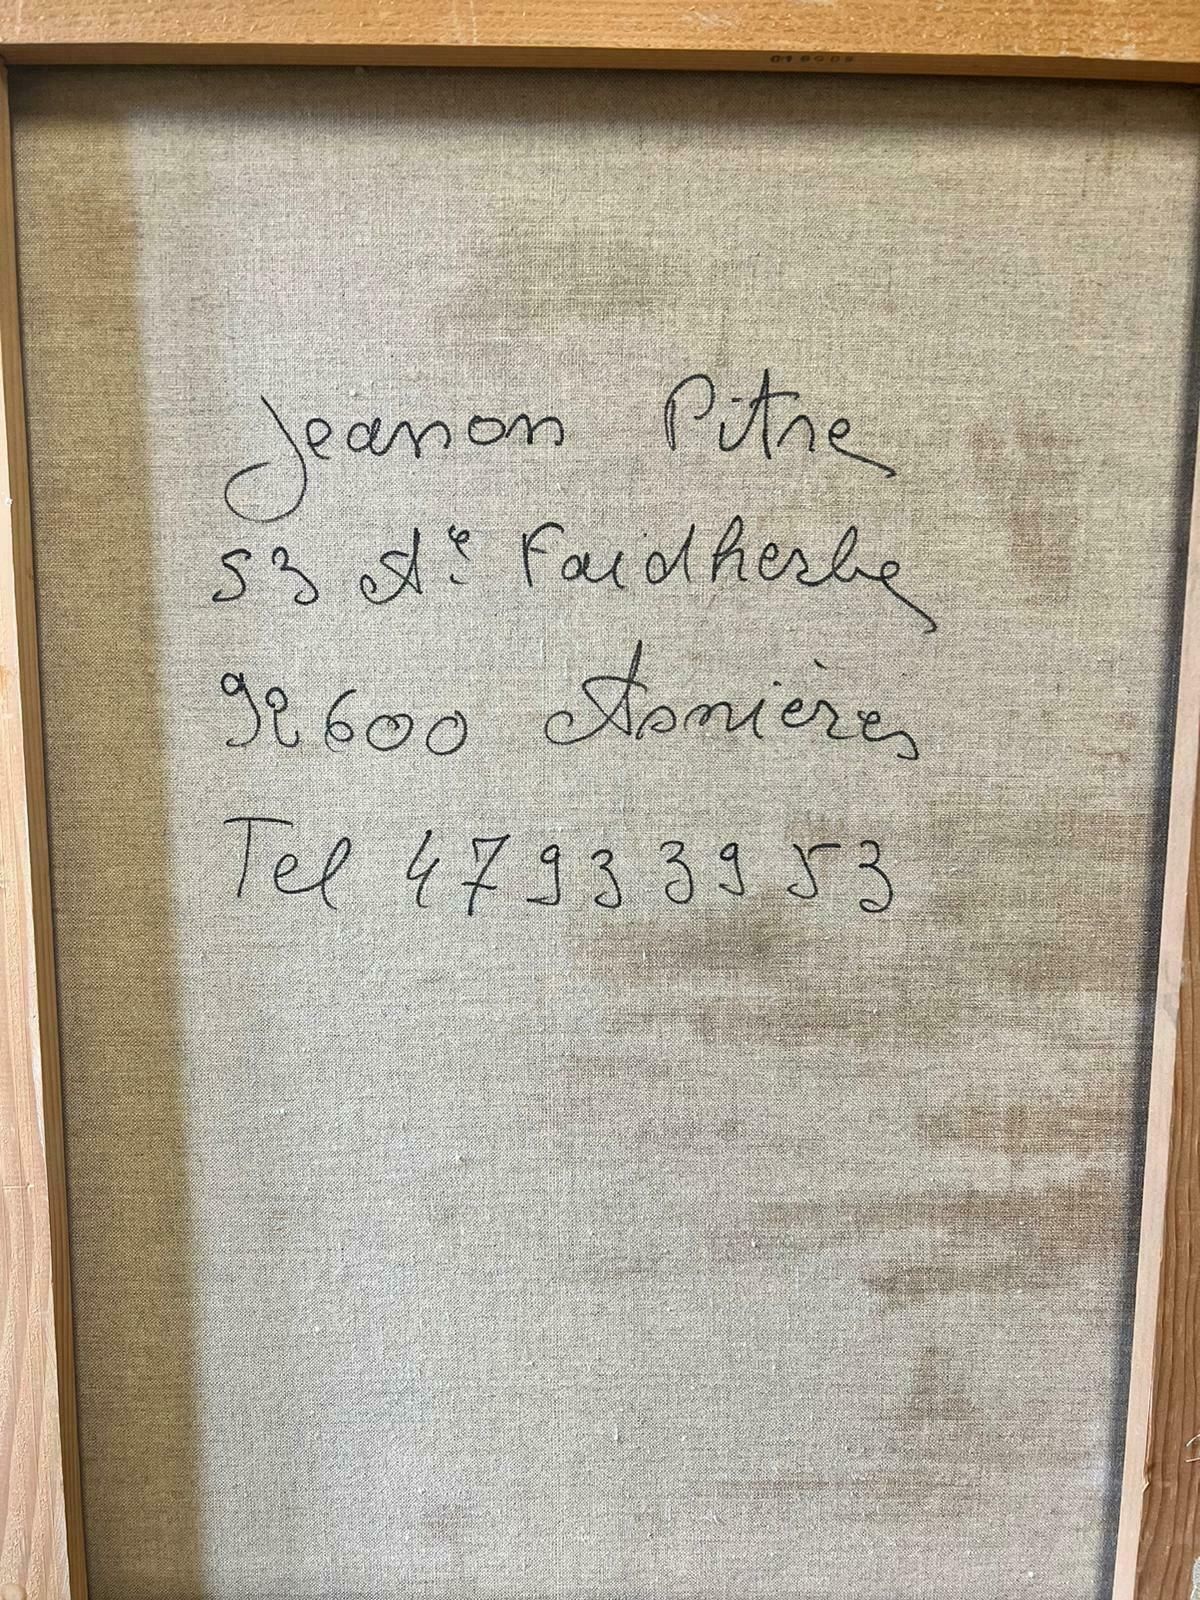 018009
Jeanon Pitre
53 Ae Faidherbe
92600 Asnières
Tel 47 93 39 53